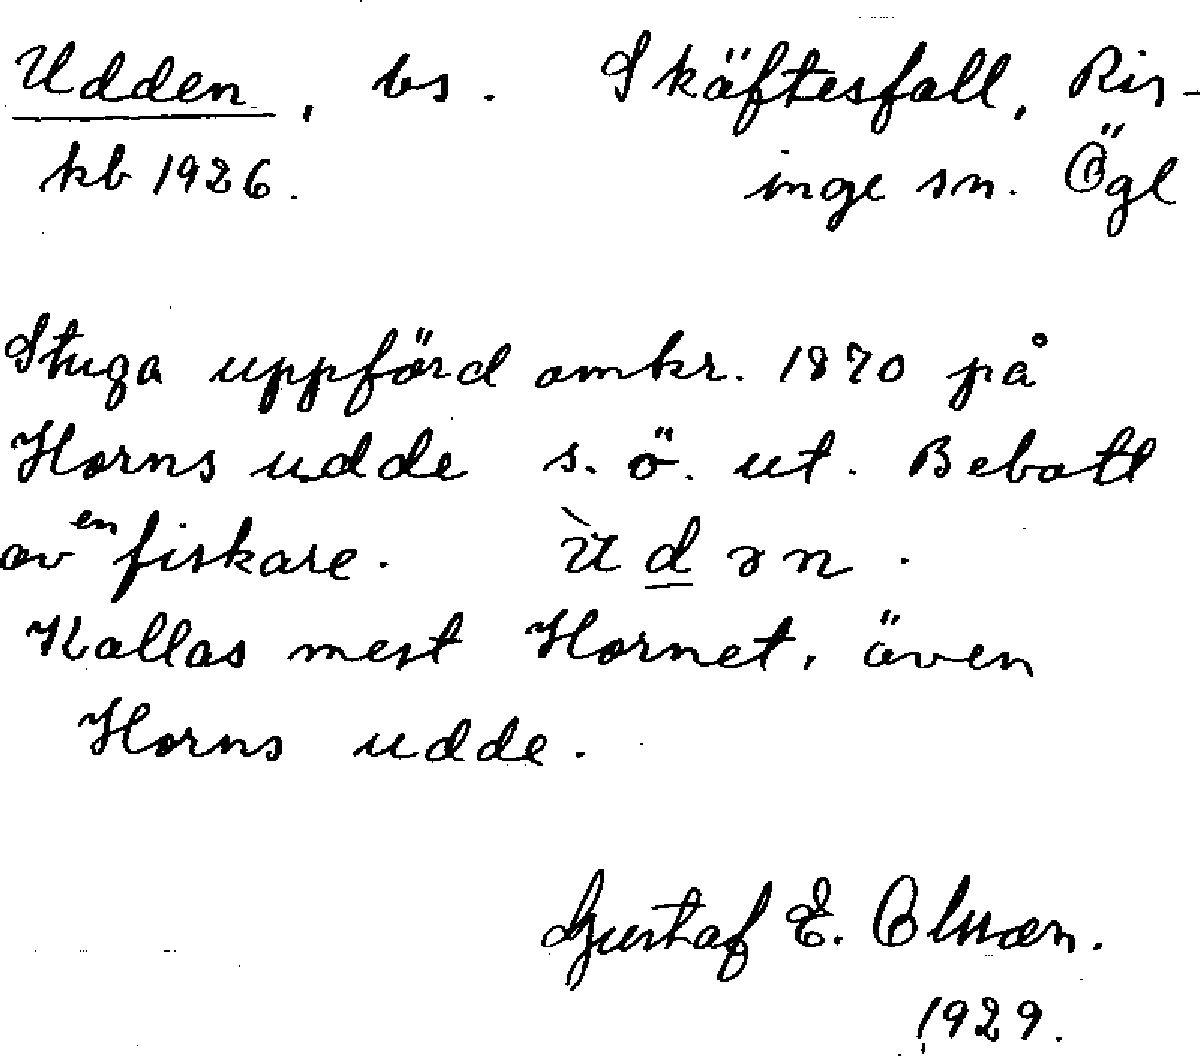 Udden, bs. Skäftesfall, Ris-
kb 1926. inge sn. Ögl
Stuga uppförd omkr. 1870 på
Horns udde s. ö. ut. Bebott
av en fiskare. ùdən.
Kallas mest Hornet, även
Horns udde.
Gustaf E. Olsson.
1929.